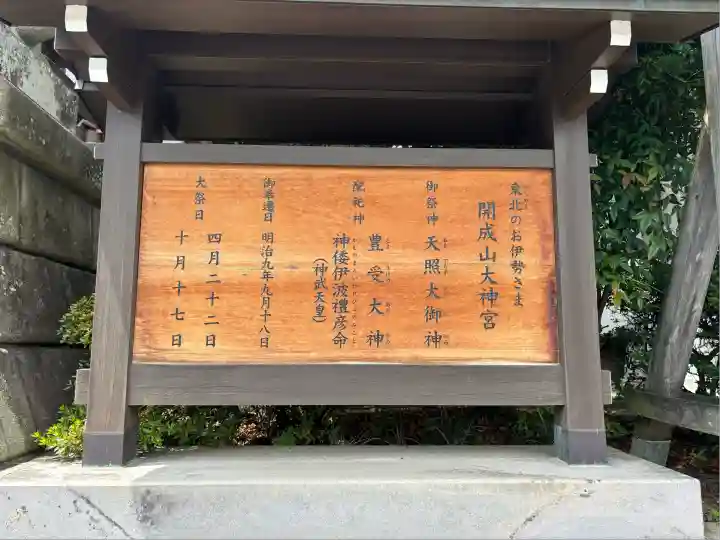 東北のお伊勢さま
開成山大神宮
御祭神 天照大御神
配祀神 豊受大神
神倭伊波禮彦命
(神武天皇)
御奉遷日 明治九年九月十八日
大祭日 四月二十二日
十月十七日